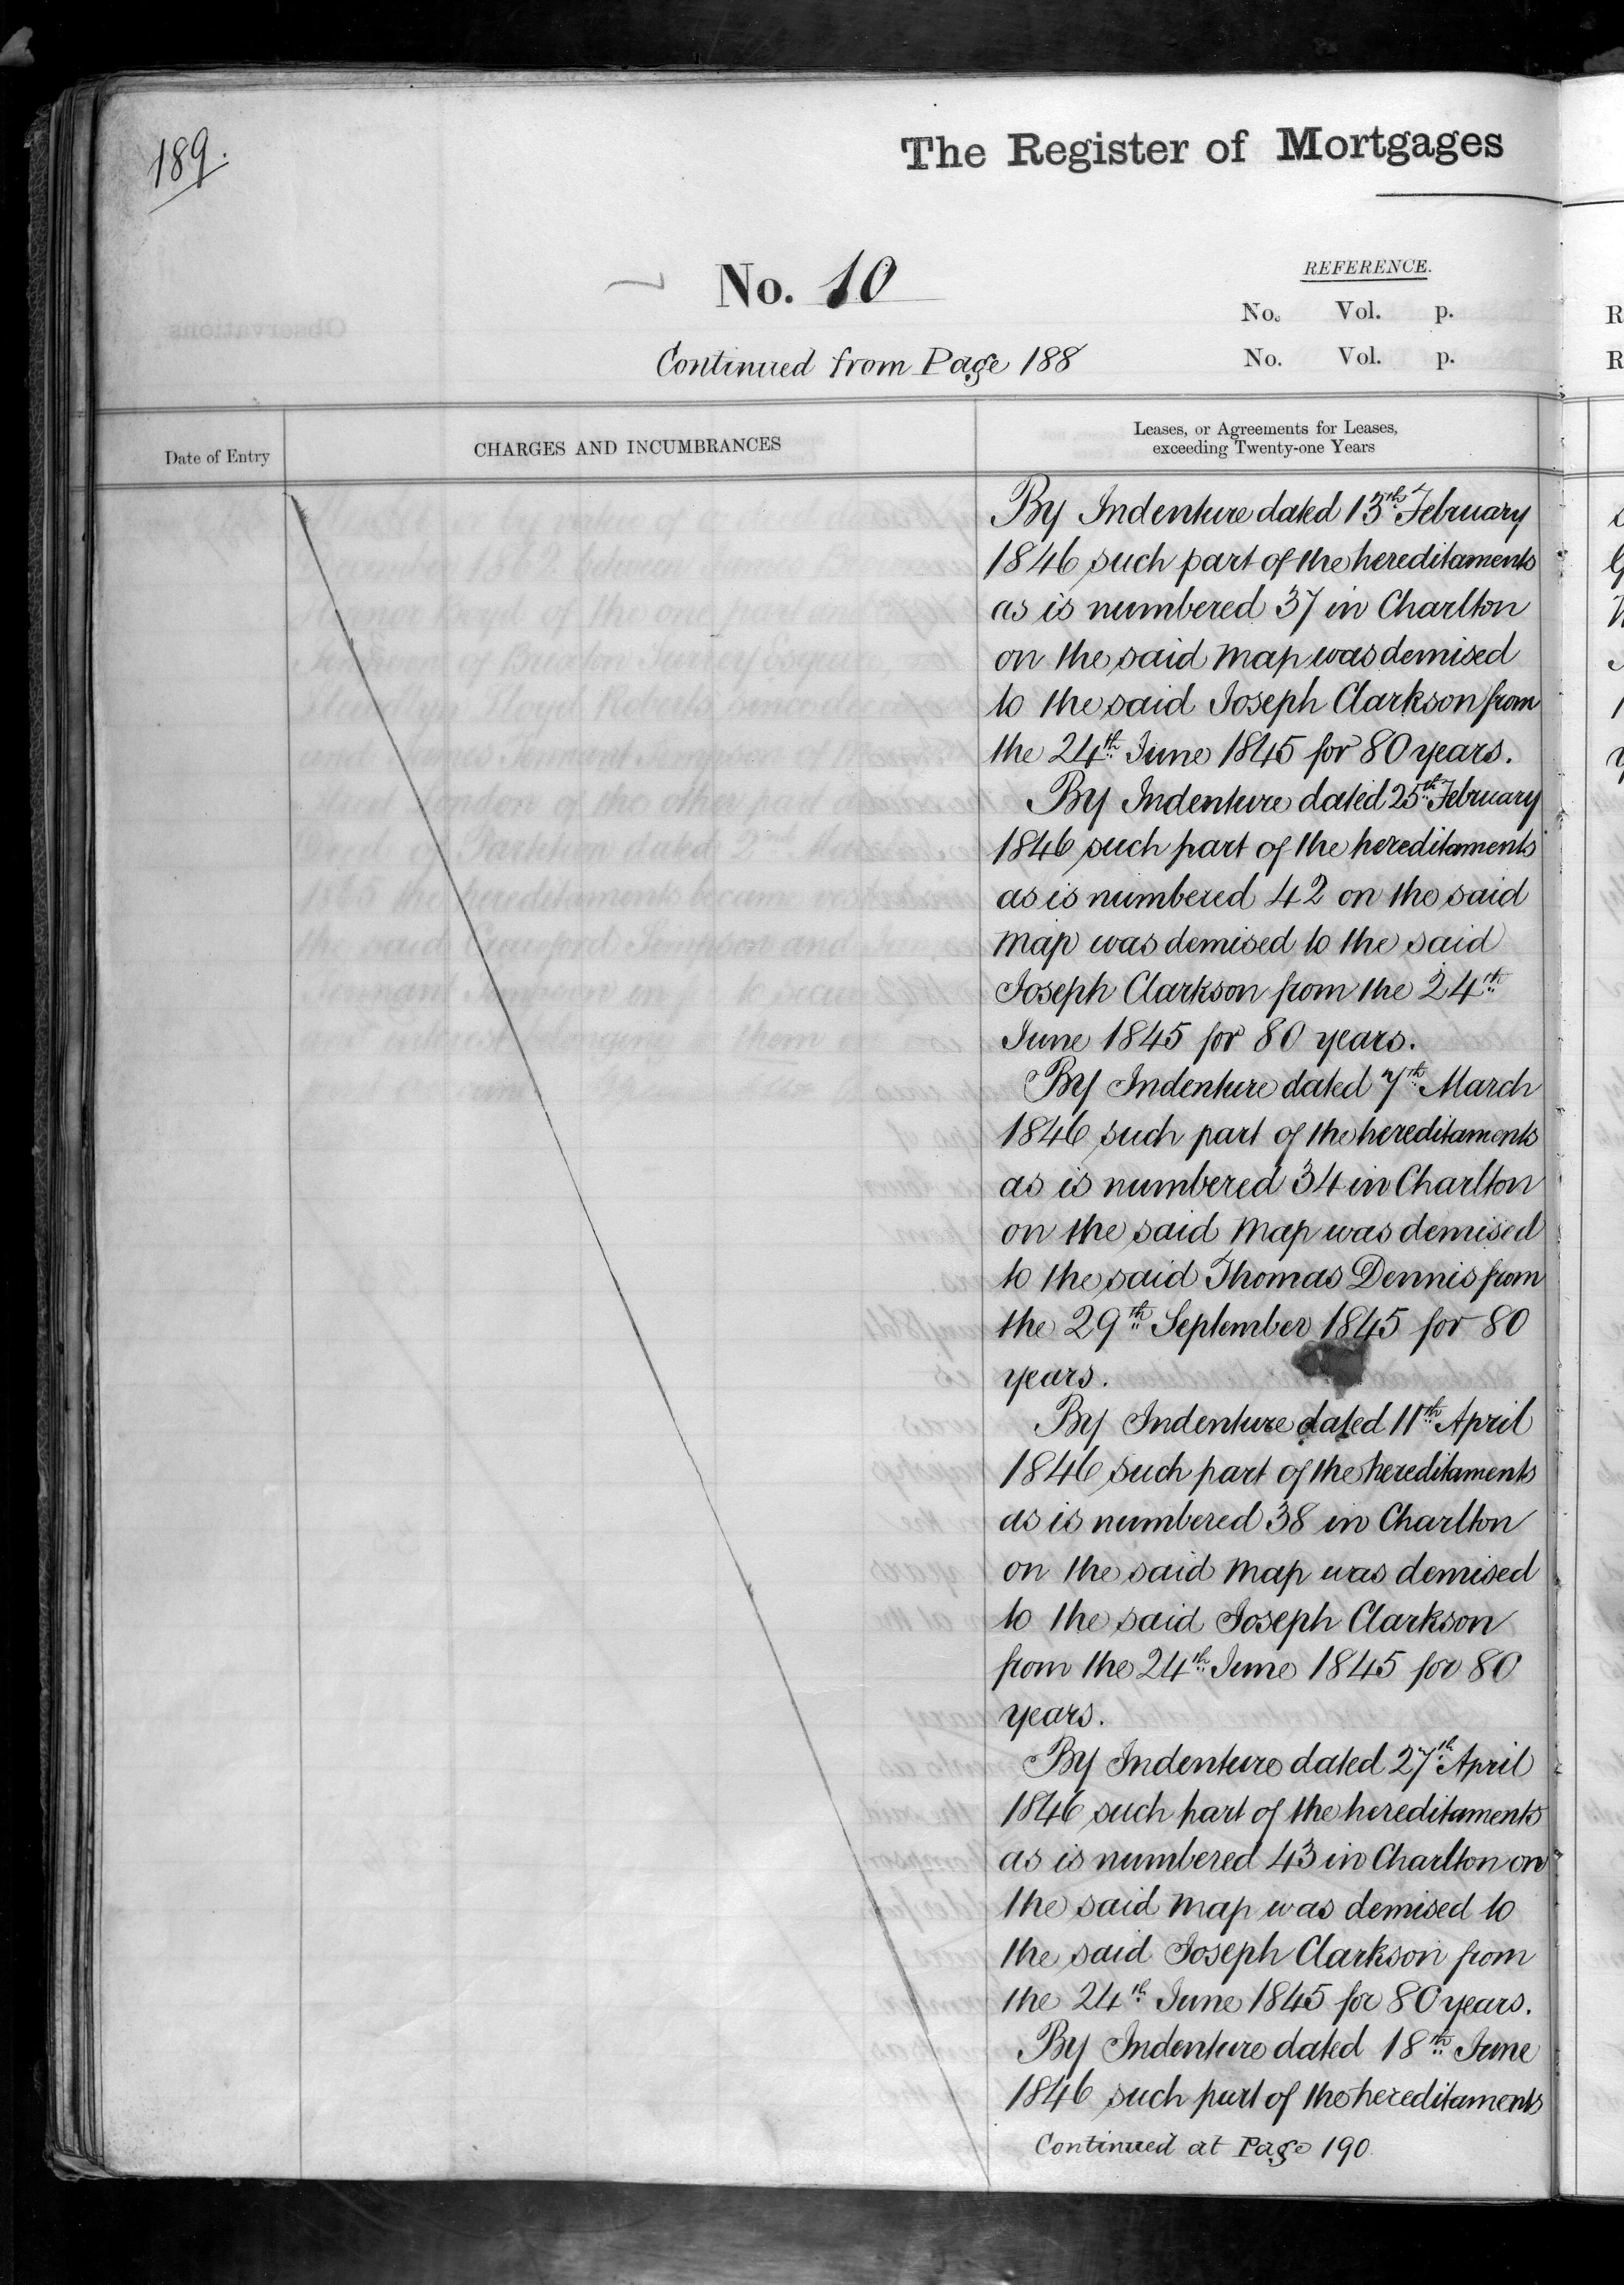 189.
The Register of Mortgages
No. 10
REFERENCE.
No. Vol. p.
No. Vol. p.
Continued from Page 188
Date of Entry
CHARGES AND INCUMBRANCES
Leases, or Agreements for Leases,
exceeding Twenty-one Years
By Indenture dated 13th February
1846 such part of the hereditaments
as is numbered 37 in Charlton
on the said map was demised
to the said Joseph Clarkson from
the 24th June 1845 for 80 years.
By Indenture dated 25th February
1846 such part of the hereditaments
as is numbered 42 on the said
map was demised to the said
Joseph Clarkson from the 24th
June 1845 for 80 years.
By Indenture dated 7th March
1846 such part of the hereditaments
as is numbered 34 in Charlton
on the said map was demised
to the said Thomas Dennis from
the 29th September 1845 for 80
years.
By Indenture dated 11th April
1846 such part of the hereditaments
as is numbered 38 in Charlton
on the said map was demised
to the said Joseph Clarkson
from the 24th June 1845 for 80
years.
By Indenture dated 27th April
1846 such part of the hereditaments
as is numbered 43 in Charlton on
the said map was demised to
the said Joseph Clarkson from
the 24th June 1845 for 80 years.
By Indenture dated 18th June
1846 such part of the hereditaments
Continued at Page 190